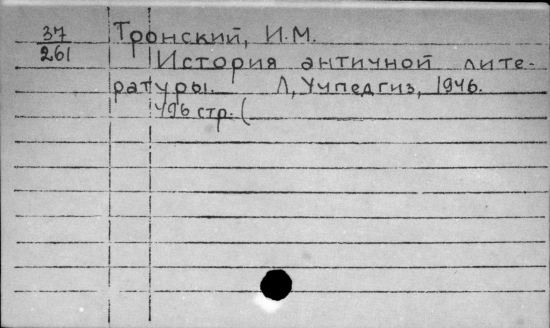 37
261
Тронский, И.М.
История античной лите-
ратуры. Л, Учпедгиз, 1946.
496 стр. (